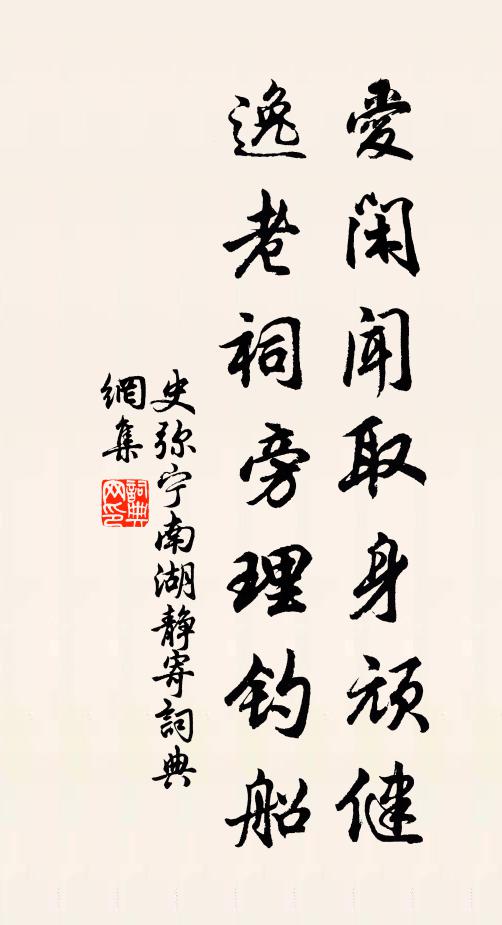 愛闲聞取身頑健
逸老祠旁理釣船
史弥宁南湖静寄詞典
網集
詞典
网印